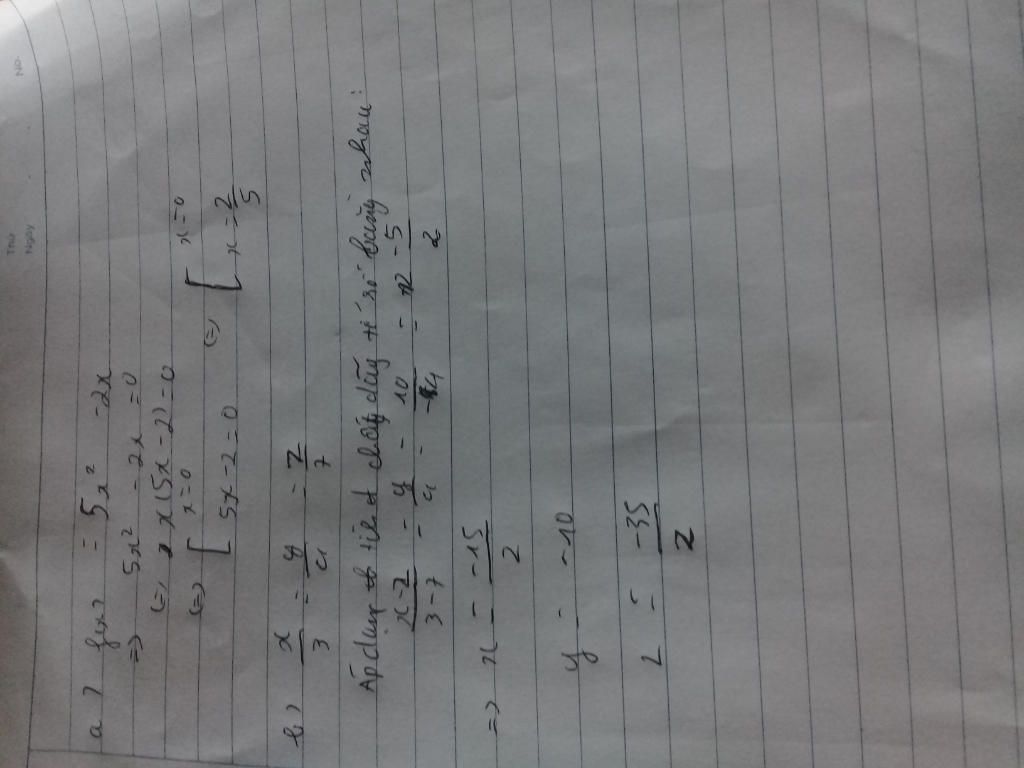 No.
Thứ
Ngày
a) f(x) = 5x² - 2x
=> 5x² - 2x = 0
(=) x(5x - 2) = 0
(=) [ x = 0 (=) [ x = 0
5x - 2 = 0 x = 2/5
b) x/3 = y/4 = z/7
Áp dụng chất dãy tỉ số bằng nhau:
x-z/3-7 = y/4 = 10/-4 = -5/2
=> x = -15/2
y = -10
z = -35/2